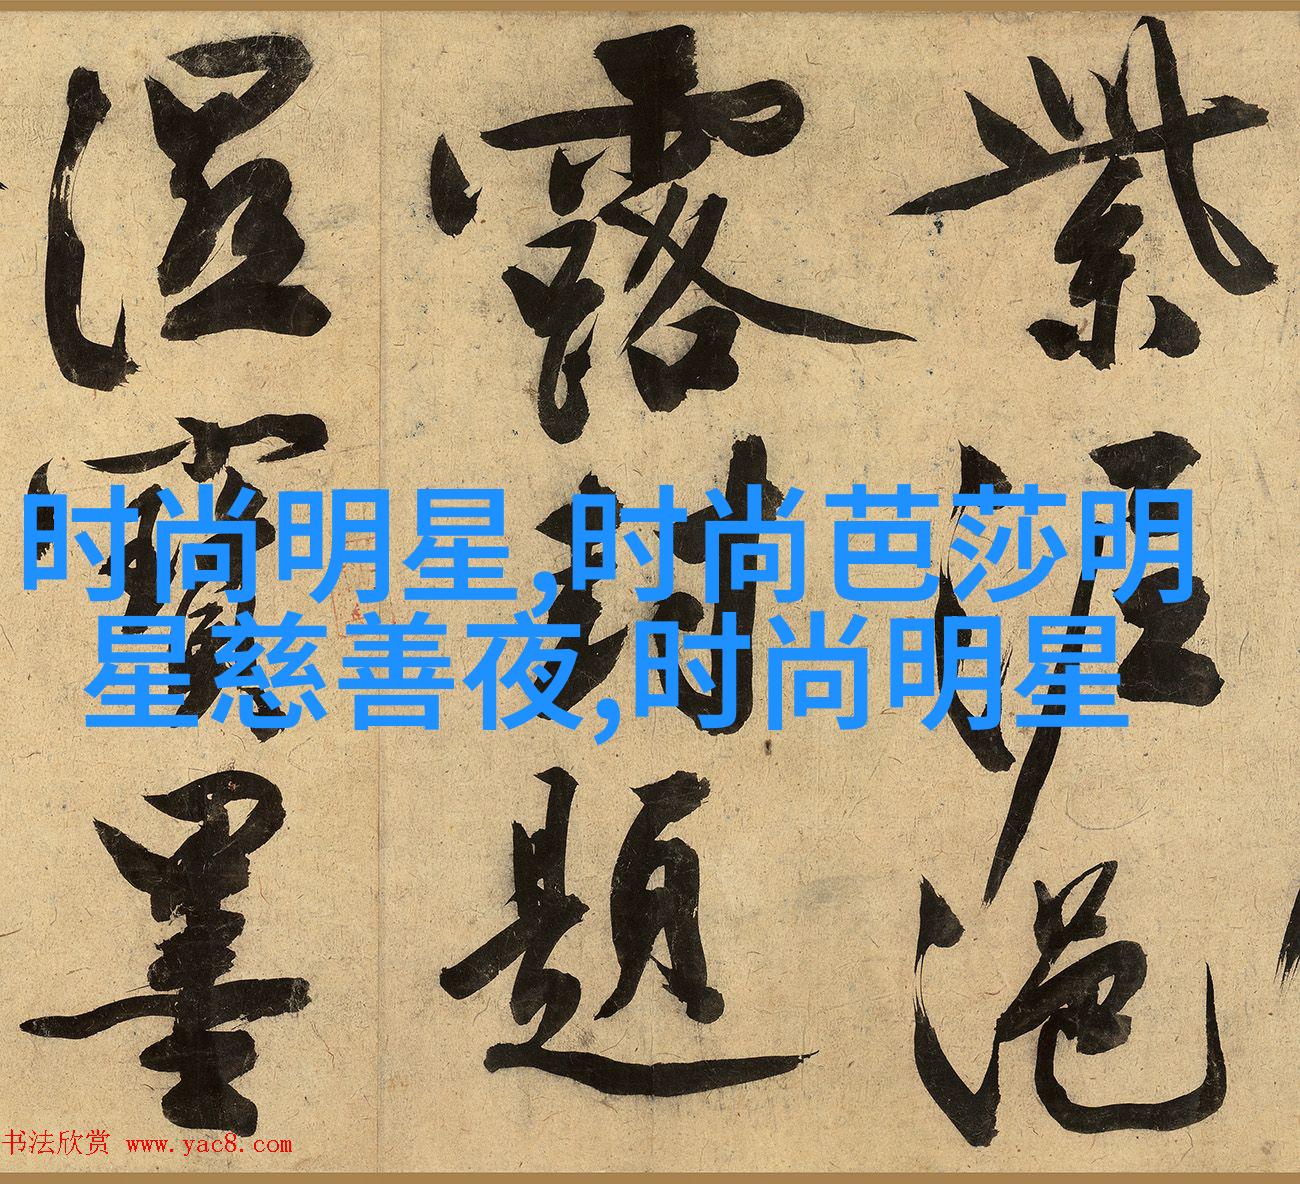 紫泥浥
露封題
湿寶墨
时尚明星,时尚芭莎明
星慈善夜,时尚明星
书法欣赏 www.yac8.com